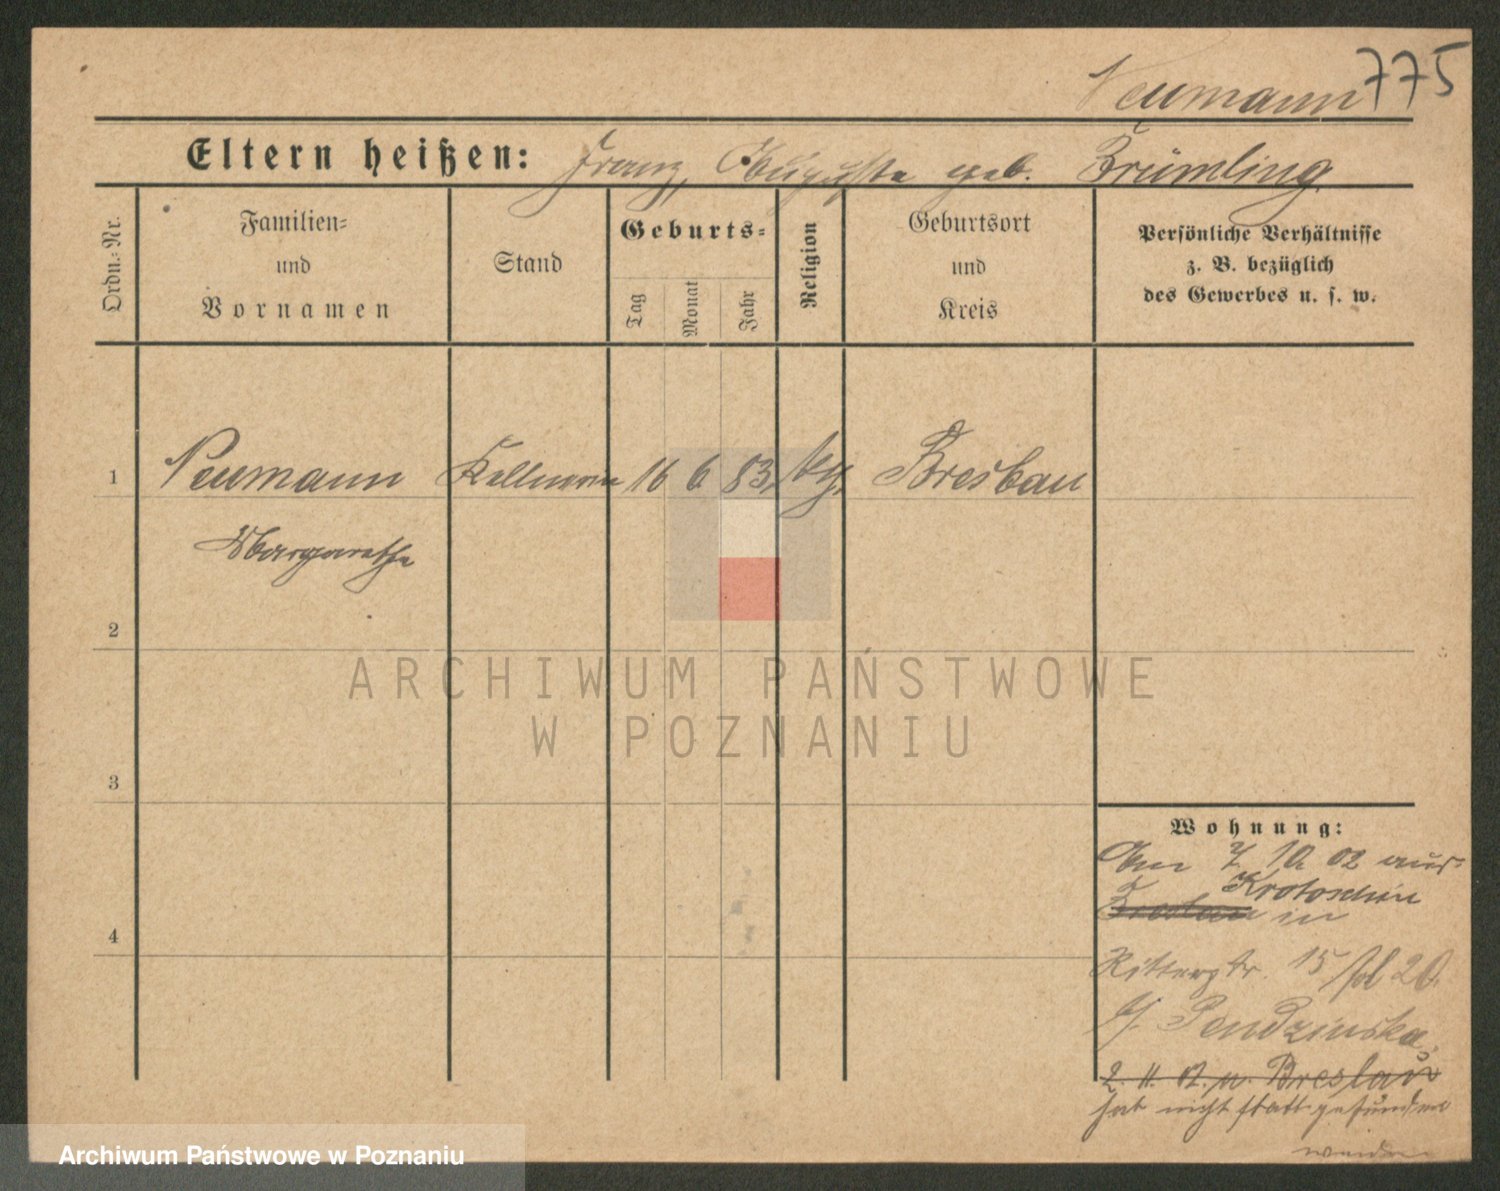 Neumann 775
Eltern heißen: Franz, Auguste geb. Brümling
Ordn.-Nr.
Familien-
und
Vornamen
Stand
Geburts-
Tag
Monat
Jahr
Religion
Geburtsort
und
Kreis
Persönliche Verhältnisse
z. B. bezüglich
des Gewerbes u. s. w.
1 Neumann Kellnerin 16 6 83. Breslau
Margarethe
2
ARCHIWUM PAŃSTWOWE
W POZNANIU
3
Wohnung:
7. 10. 02 aus
Krotoschin
Breslau in
4
Ritterstr. 15 20.
b/ Pendzinska.
2. 11. 02. n. Breslau
hat nicht statt gefunden
wenden
Archiwum Państwowe w Poznaniu